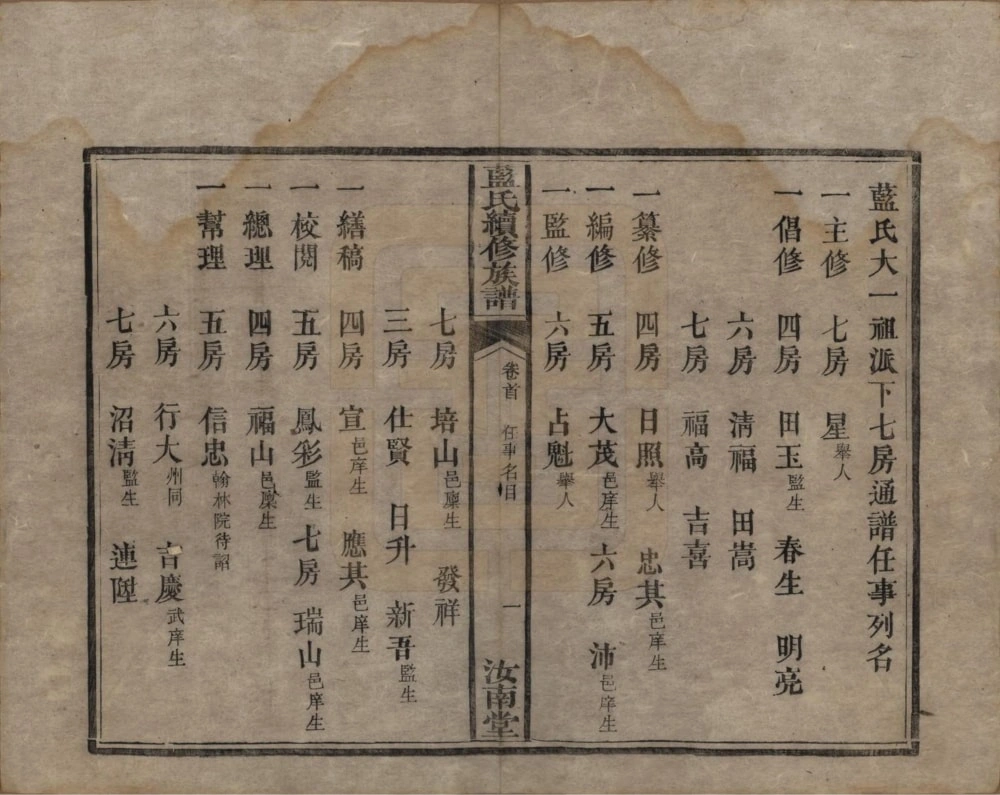 藍氏大一祖派下七房通譜任事列名
一主修 七房 星舉人
一倡修 四房 田玉監生 春生 明亮
六房 清福 田嵩
七房 福高 吉喜
一纂修 四房 日照舉人 忠其邑庠生
一編修 五房 大茂邑庠生 六房 沛邑庠生
一監修 六房 占魁舉人
藍氏續修族譜 卷首 任事名目 一 汝南堂
七房 培山邑廩生 發祥
三房 仕賢 日升 新吾監生
一繕稿 四房 宣邑庠生 應其邑庠生
一校閱 五房 鳳彩監生 七房 瑞山邑庠生
一總理 四房 福山邑廩生
一幫理 五房 信忠翰林院待詔
六房 行大州同 吉慶武庠生
七房 沼清監生 連陞